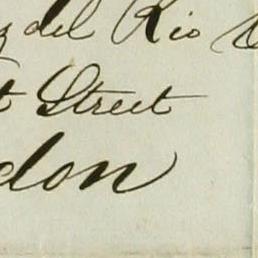 del Rio
Street
don